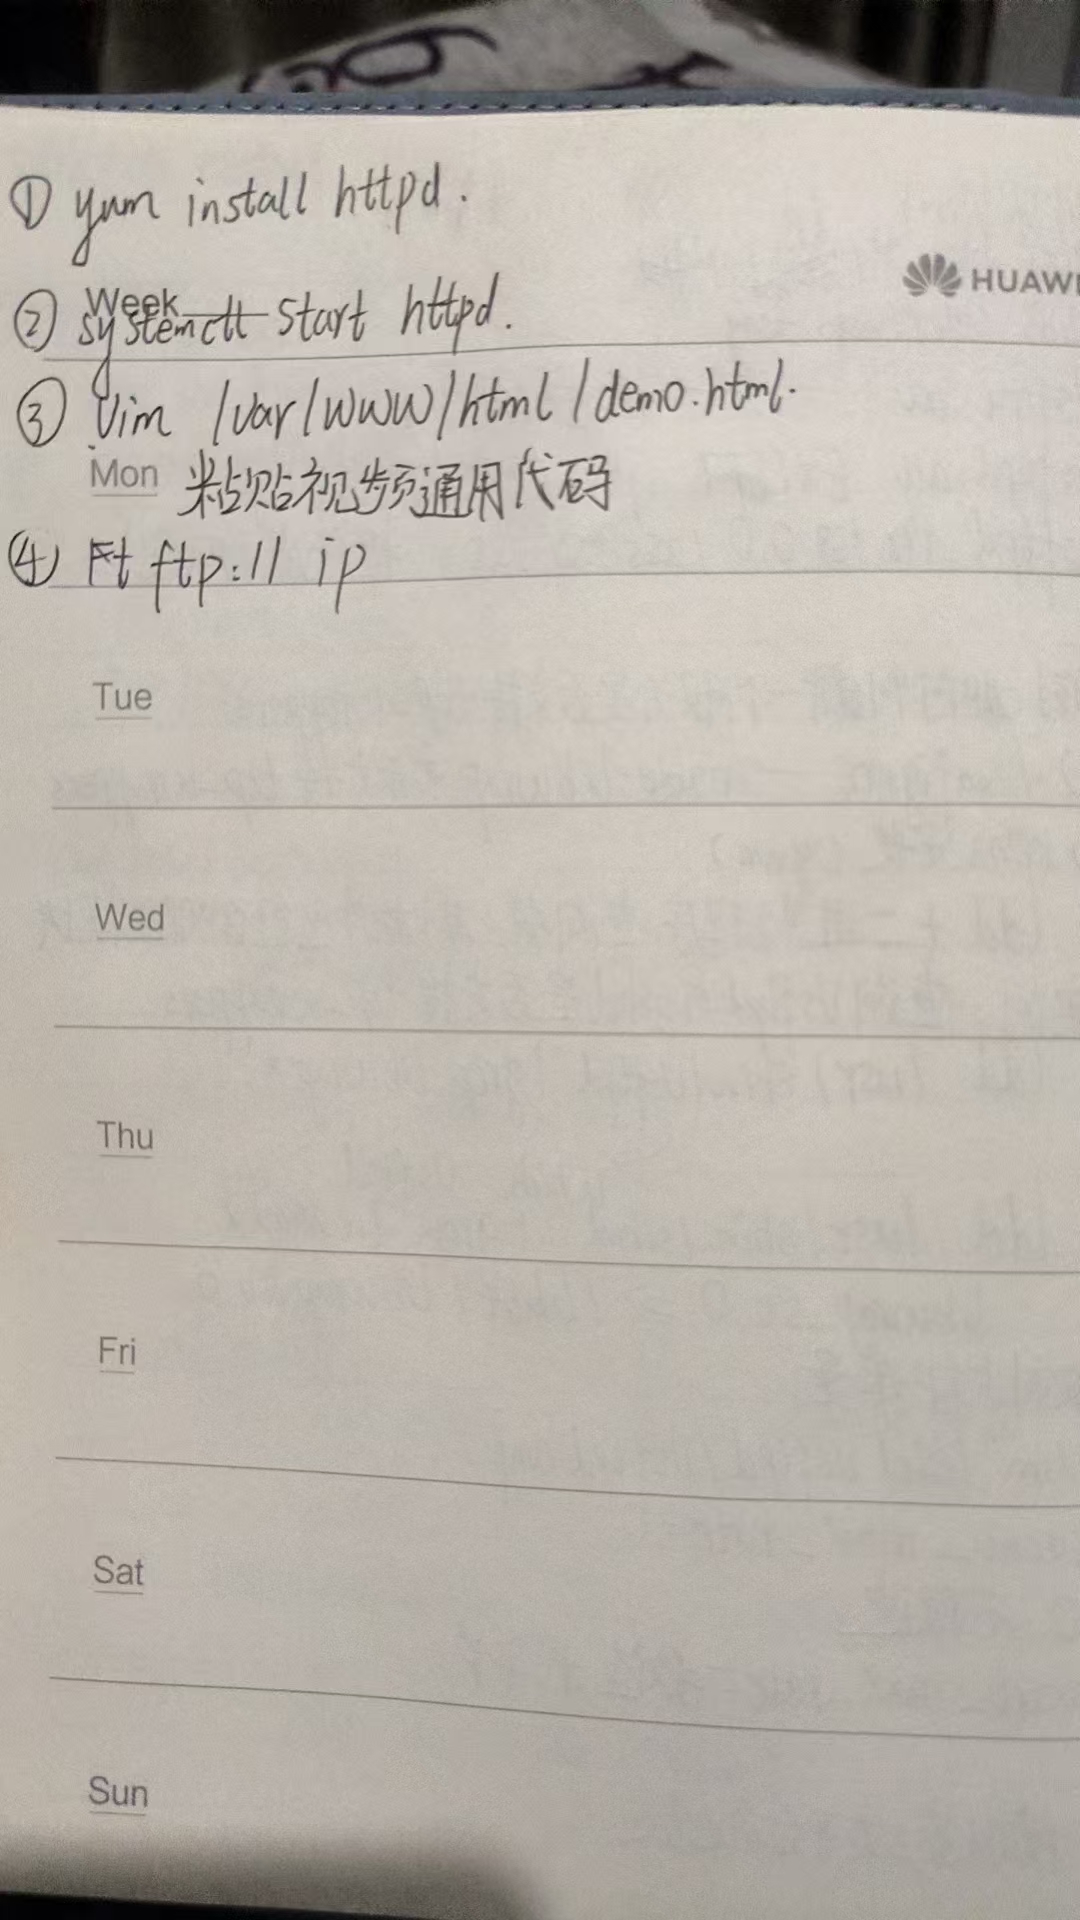 ① yum install httpd.
HUAWE
Week
② systemctl start httpd.
③ Vim /var/www/html/demo.html.
Mon 粘贴视频通用代码
④ Ft ftp:// ip
Tue
Wed
Thu
Fri
Sat
Sun